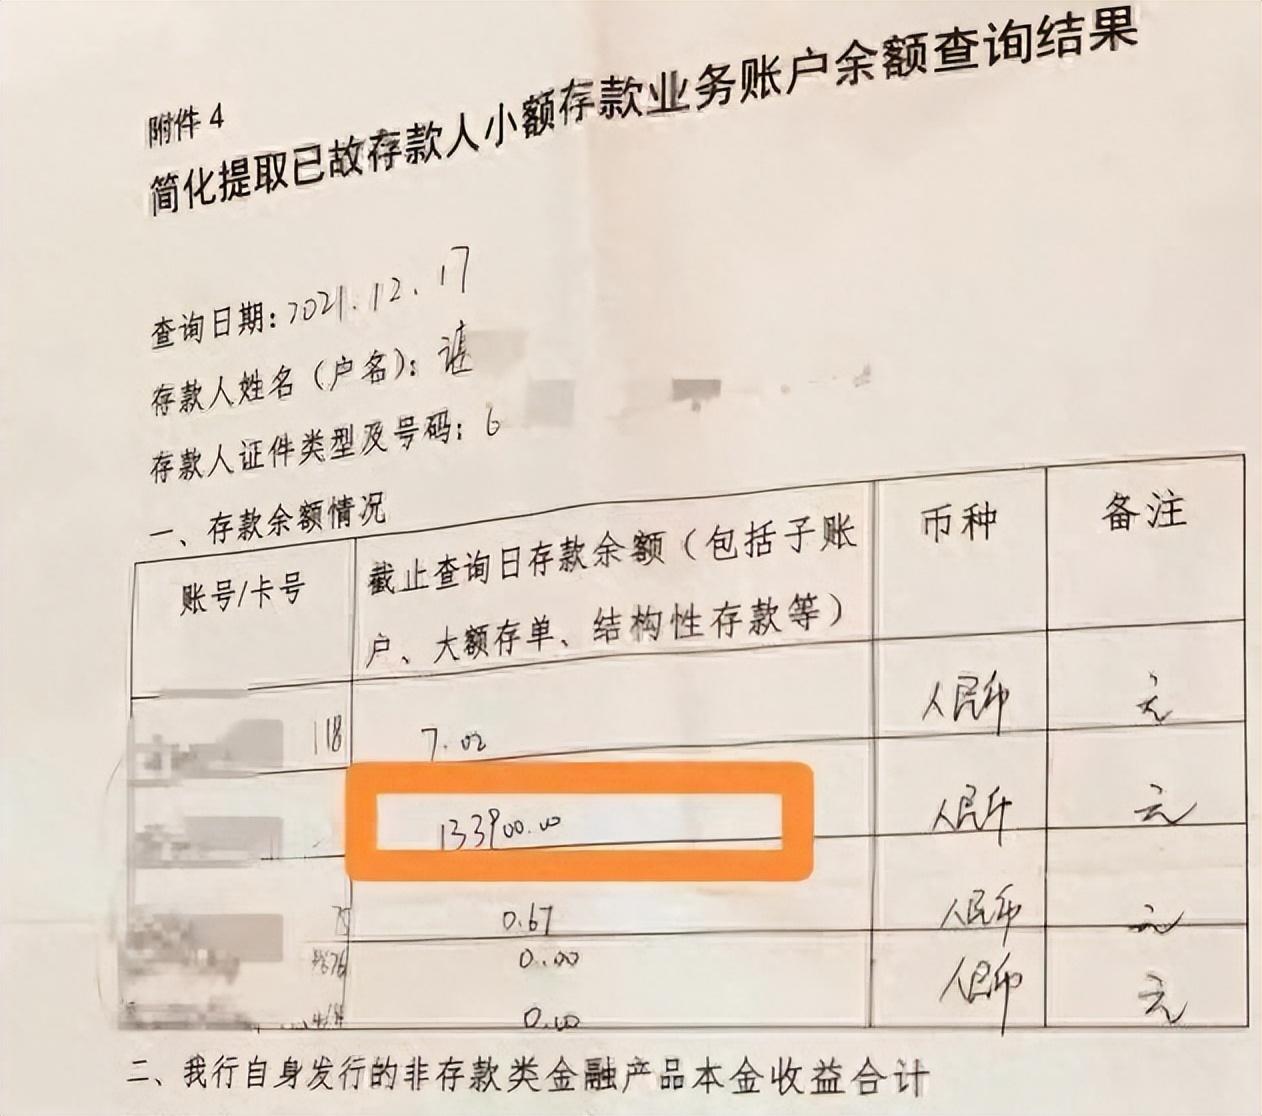 附件4
简化提取已故存款人小额存款业务账户余额查询结果
查询日期:2021.12.17
存款人姓名(户名):谌
存款人证件类型及号码:6
一、存款余额情况
账号/卡号 截止查询日存款余额(包括子账户、大额存单、结构性存款等) 币种 备注
118 7.02 人民币 元
133900.00 人民币 元
75 0.67 人民币 元
0.00 人民币 元
0.00
二、我行自身发行的非存款类金融产品本金收益合计